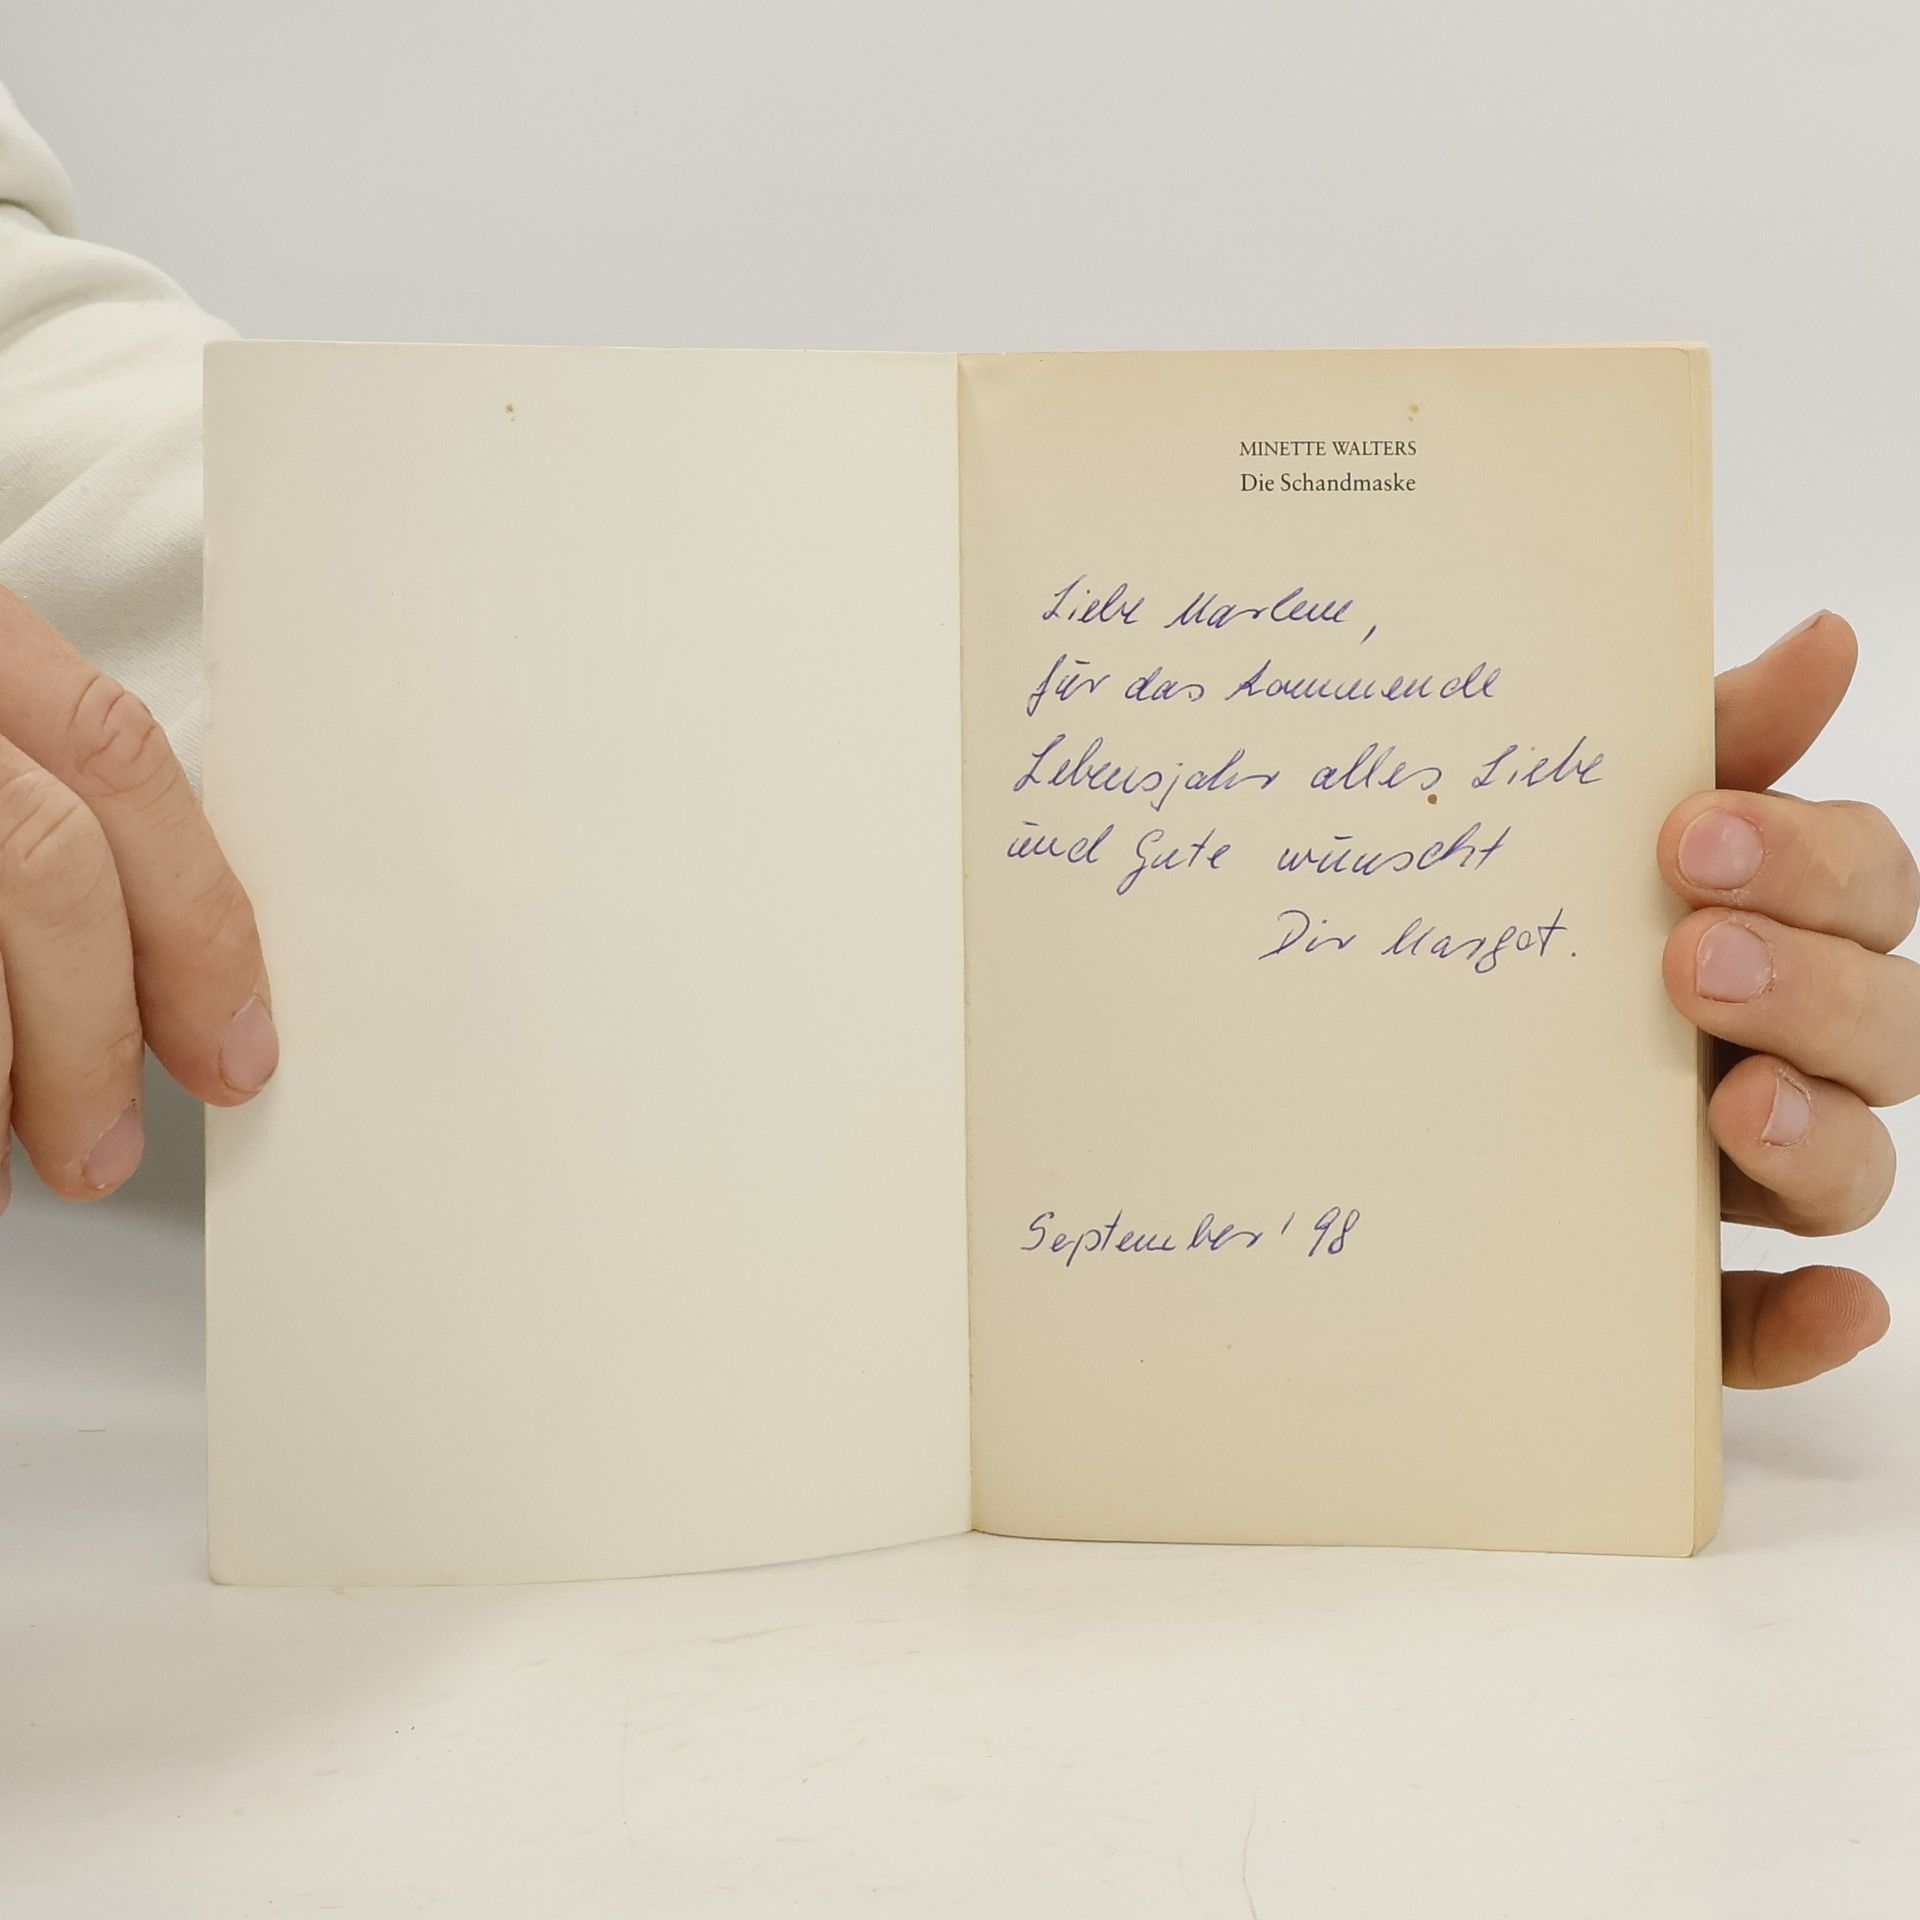 MINETTE WALTERS
Die Schandmaske
Liebe Marlene,
für das kommende
Lebensjahr alles Liebe
und Gute wünscht
Dir Margot.
September '98